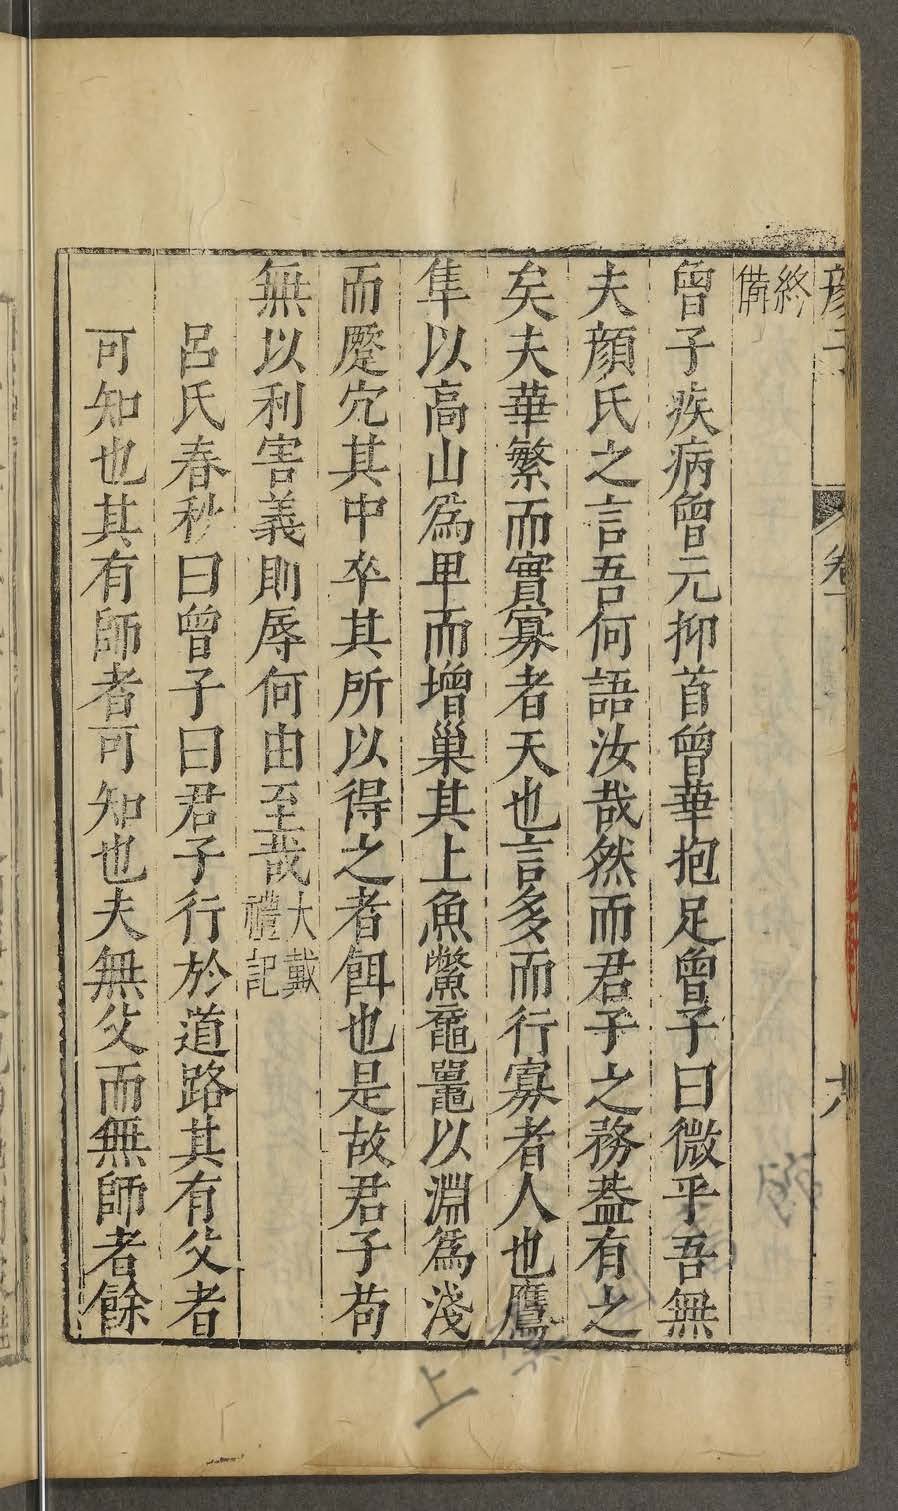 終
備
曾子疾病曾元抑首曾華抱足曾子曰微乎吾無
夫顏氏之言吾何語汝哉然而君子之務蓋有之
矣夫華繁而實寡者天也言多而行寡者人也鷹
隼以高山爲卑而增巢其上魚鱉黿鼉以淵爲淺
而蹷穴其中卒其所以得之者餌也是故君子苟
無以利害義則辱何由至哉大戴
禮記
呂氏春秋曰曾子曰君子行於道路其有父者
可知也其有師者可知也夫無父而無師者餘
上